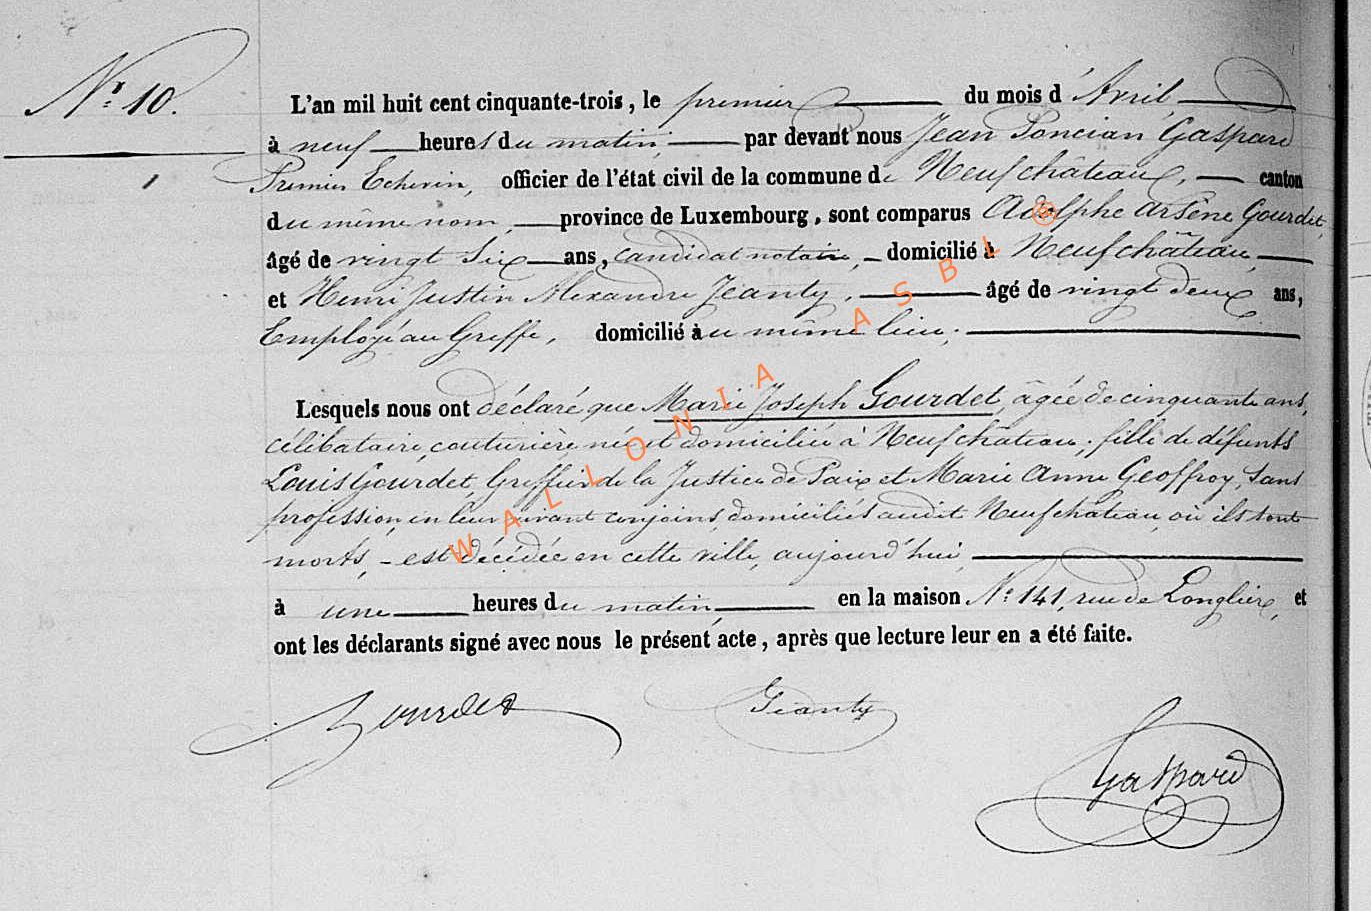 N.r 10.
L'an mil huit cent cinquante-trois, le premier du mois d'Avril
à neuf heures du matin, par devant nous Jean Poncian Gaspard
1
Premier Echevin, officier de l'état civil de la commune de Neufchâteau, canton
du même nom, province de Luxembourg, sont comparus Adolphe Arsène Gourdet,
âgé de vingt six ans, candidat notaire, domicilié à Neufchâteau,
et Henri Justin Alexandre Jeanty, âgé de vingt deux ans,
Employé au Greffe, domicilié au même lieu;
Lesquels nous ont déclaré que Marie Joseph Gourdet, âgée de cinquante ans,
célibataire, couturière, née et domiciliée à Neufchâteau; fille de défunts
Louis Gourdet, Greffier de la Justice de Paix et Marie Anne Geoffroy, Sans
profession, en leur vivant conjoins, domiciliés audit Neufchâteau, où ils sont
morts, - est décédée en cette ville, aujourd'hui,
à une heures du matin, en la maison N.o 141, rue de Longlier, et
ont les déclarants signé avec nous le présent acte, après que lecture leur en a été faite.
Gourdet Jeanty
Gaspard
WALLONIA ASBL ®